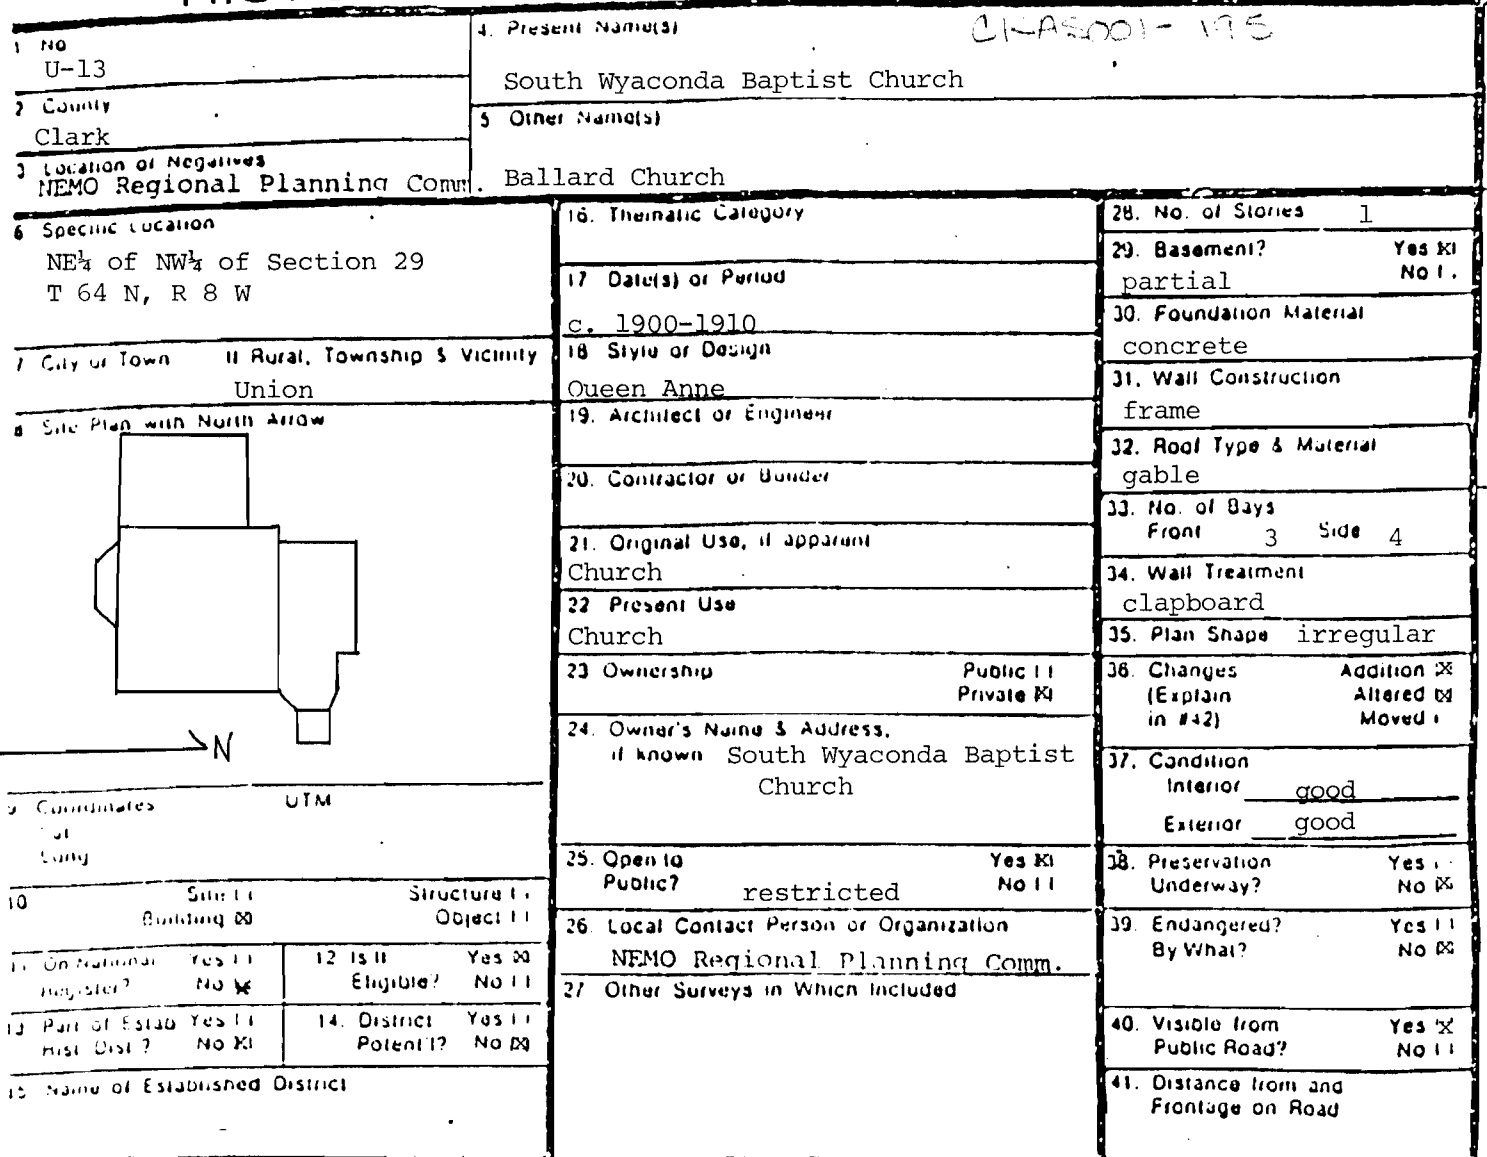 1 No
U-13
2 County
Clark
3 Location of Negatives
NEMO Regional Planning Comm.
4. Present Name(s)
South Wyaconda Baptist Church
5 Other Name(s)
Ballard Church
6 Specific Location
NE¼ of NW¼ of Section 29
T 64 N, R 8 W
7 City or Town If Rural, Township & Vicinity
Union
8 Site Plan with North Arrow
N
9 Coordinates UTM
Lat
Long
10 Site Structure
Building ☒ Object
11 On National Register? Yes No ☒
12 Is It Eligible? Yes ☒ No
13 Part of Estab Hist. Dist.? Yes No ☒
14. District Potent'l? Yes No ☒
15 Name of Established District
16. Thematic Category
17 Date(s) or Period
c. 1900-1910
18 Style or Design
Queen Anne
19. Architect or Engineer
20. Contractor or Builder
21. Original Use, if apparent
Church
22 Present Use
Church
23 Ownership Public
Private ☒
24. Owner's Name & Address,
if known South Wyaconda Baptist
Church
25. Open to Yes ☒
Public? restricted No
26. Local Contact Person or Organization
NEMO Regional Planning Comm.
27 Other Surveys in Which Included
28. No. of Stories 1
29. Basement? Yes ☒
partial No
30. Foundation Material
concrete
31. Wall Construction
frame
32. Roof Type & Material
gable
33. No. of Bays
Front 3 Side 4
34. Wall Treatment
clapboard
35. Plan Shape irregular
36. Changes Addition ☒
(Explain Altered ☒
in #42) Moved
37. Condition
Interior good
Exterior good
38. Preservation Yes
Underway? No ☒
39. Endangered? Yes
By What? No ☒
40. Visible from Yes ☒
Public Road? No
41. Distance from and
Frontage on Road